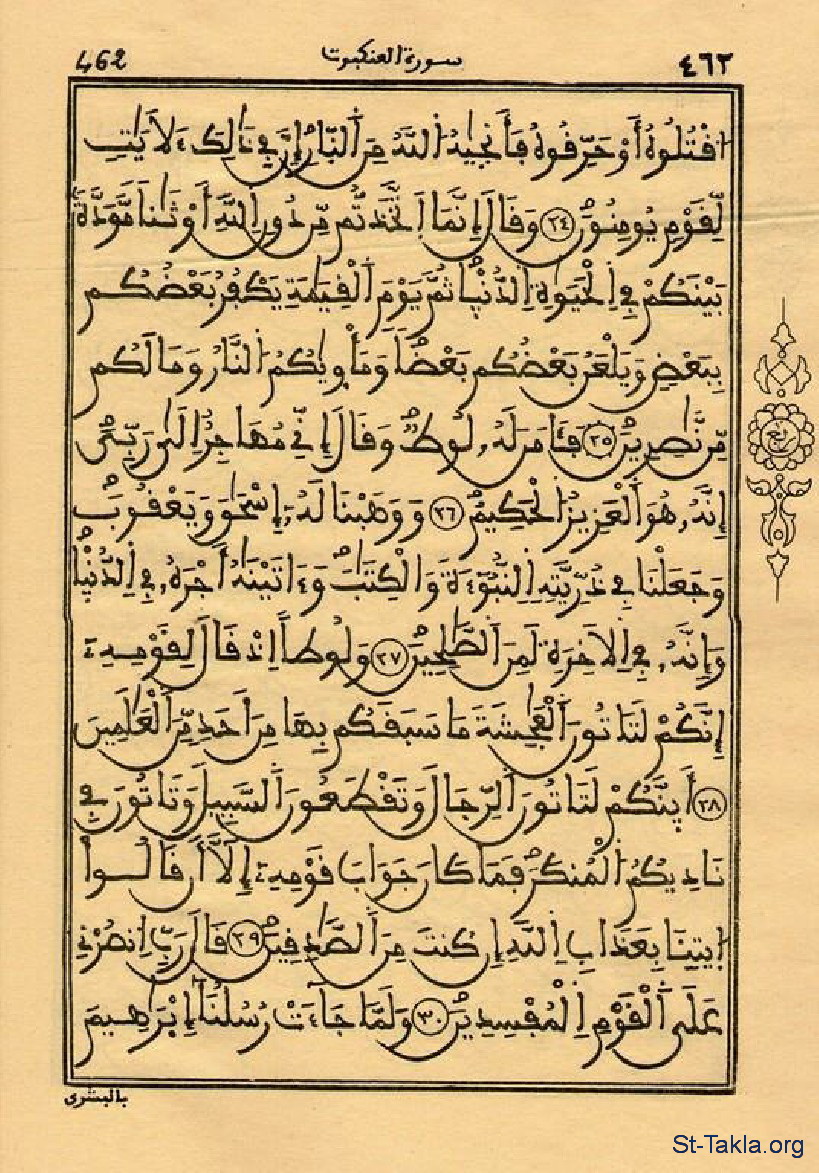 462 سورة العنكبوت ٤٦٢
اقْتُلُوهُ أَوْ حَرِّقُوهُ فَأَنجَيٰهُ اُللَّهُ مِنَ اَلنّ۪ارِ إِنَّ فِي ذَٰلِكَ ءَلَايَٰتٍ
لِّقَوْمٍ يُومِنُونَ ٢٤ وَقَالَ إِنَّمَا اَتَّخَذتُّم مِّن دُونِ اِللَّهِ أَوْثَٰناً مَّوَدَّةً
بَيْنَكُمْ فِي اِلْحَيَوٰةِ اِلدُّنْيٰا ثُمَّ يَوْمَ اَلْقِيَٰمَةِ يَكْفُرُ بَعْضُكُم
بِبَعْضٍ وَيَلْعَنُ بَعْضُكُم بَعْضاً وَمَأْوٜيٰكُمُ اُلنَّارُ وَمَا لَكُم
مِّن نَّٰصِرِينَ ٢٥ فَـَٔامَنَ لَهُۥ لُوطٌ وَقَالَ إِنِّي مُهَاجِرٌ اِلَىٰ رَبِّيَ
إِنَّهُۥ هُوَ اَلْعَزِيزُ اُلْحَكِيمُ ٢٦ وَوَهَبْنَا لَهُۥ إِسْحَٰقَ وَيَعْقُوبَ
وَجَعَلْنَا فِي ذُرِّيَّتِهِ اِلنُّبُوٓءَةَ وَالْكِتَٰبَ وَءَاتَيْنَٰهُ أَجْرَهُۥ فِي اِلدُّنْيٰا
وَإِنَّهُۥ فِي اِلَاخِرَةِ لَمِنَ اَلصَّٰلِحِينَ ٢٧ وَلُوطاً اِذْ قَالَ لِقَوْمِهِۦ
إِنَّكُمْ لَتَاتُونَ اَلْفَٰحِشَةَ مَا سَبَقَكُم بِهَا مِنَ اَحَدٍ مِّنَ اَلْعَٰلَمِينَ
٢٨ أَى۟نَّكُمْ لَتَاتُونَ اَلرِّجَالَ وَتَقْطَعُونَ اَلسَّبِيلَ وَتَاتُونَ فِي
نَادِيكُمُ اُلْمُنكَرَ فَمَا كَانَ جَوَابَ قَوْمِهِۦٓ إِلَّآ أَن قَالُوا
اُيتِنَا بِعَذَابِ اِللَّهِ إِن كُنتَ مِنَ اَلصَّٰدِقِينَ ٢٩ قَالَ رَبِّ اِنصُرْنِي
عَلَى اَلْقَوْمِ اِلْمُفْسِدِينَ ٣٠ وَلَمَّا جَآءَتْ رُسُلُنَآ إِبْرَٰهِيمَ
بالبشرى
St-Takla.org